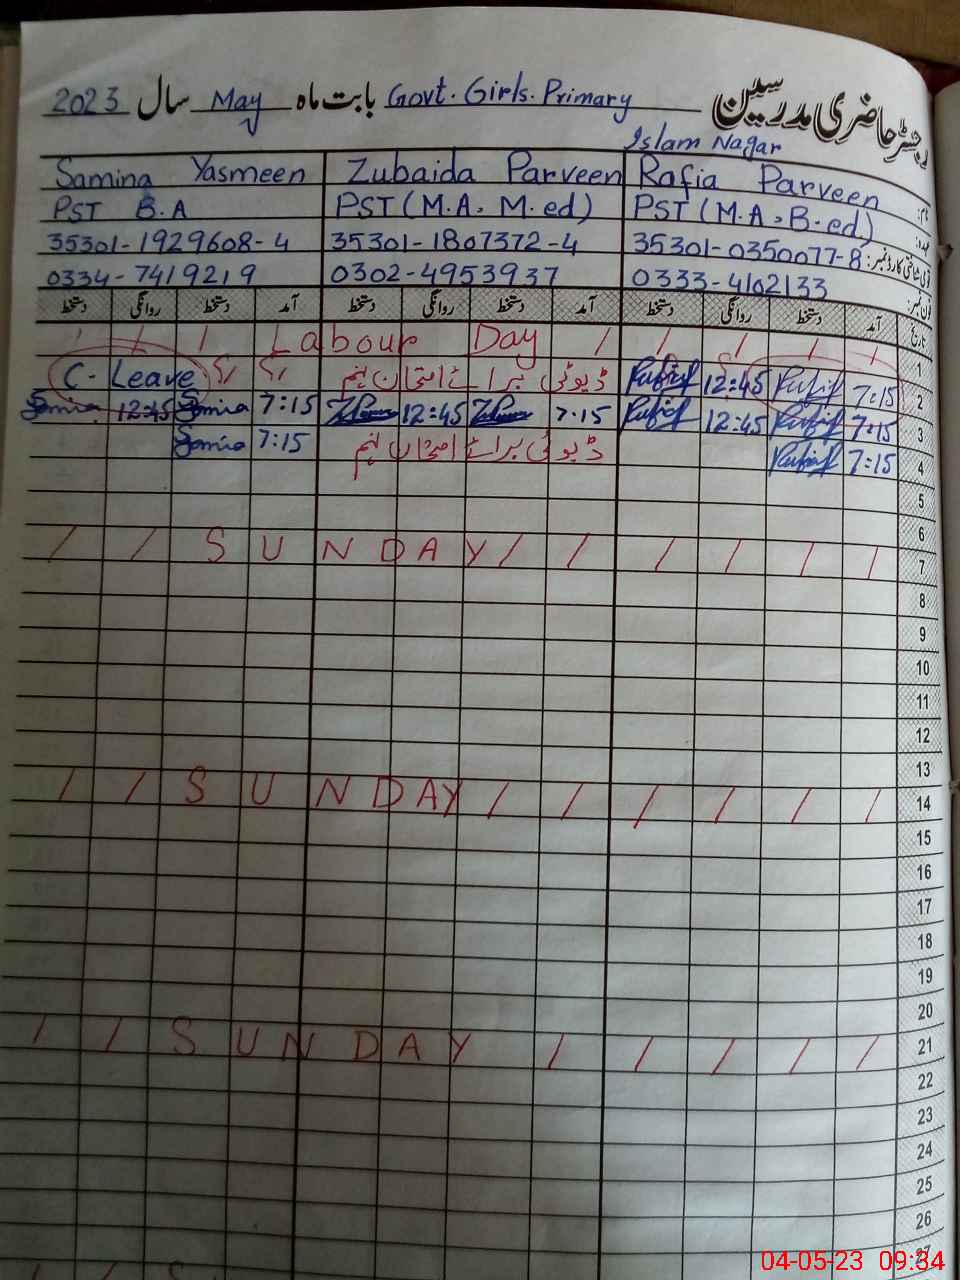 رجسٹر حاضری مدرسین Govt. Girls. Primary بابت ماہ May سال 2023
Islam Nagar
نام: Rafia Parveen Zubaida Parveen Samina Yasmeen
عہدہ: PST (M.A, B.ed) PST (M.A, M.ed) PST B.A
قومی شناختی کارڈ نمبر: 35301-0350077-8 35301-1807372-4 35301-1929608-4
فون نمبر: 0333-4102133 0302-4953937 0334-7419219
تاریخ آمد دستخط روانگی دستخط آمد دستخط روانگی دستخط آمد دستخط روانگی دستخط
1 / / / / / Labour Day / / /
2 7:15 Rafia 12:45 Rafia ڈیوٹی برائے امتحان نہم C- Leave
3 7:15 Rafia 12:45 Rafia 7:15 12:45 7:15 Samina 12:45 Samina
4 7:15 Rafia ڈیوٹی برائے امتحان نہم 7:15 Samina
5
6
7 / / / / / / SUNDAY / /
8
9
10
11
12
13
14 / / / / / / SUNDAY / /
15
16
17
18
19
20
21 / / / / / SUNDAY / /
22
23
24
25
26
27
04-05-23 09:34